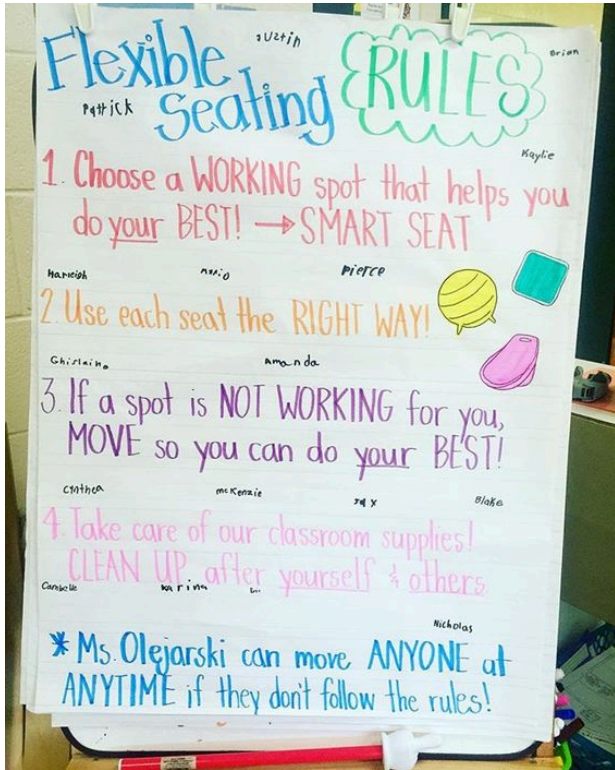 Flexible Justin RULES Brian
Patrick Seating
Kaylie
1. Choose a WORKING spot that helps you
do your BEST! → SMART SEAT
Harleigh Mario Pierce
2. Use each seat the RIGHT WAY!
Ghislaine Amanda
3. If a spot is NOT WORKING for you,
MOVE so you can do your BEST!
Cynthea McKenzie Blake
4. Take care of our classroom supplies!
CLEAN UP after yourself & others
Karina
Nicholas
* Ms. Olejarski can move ANYONE at
ANYTIME if they don't follow the rules!